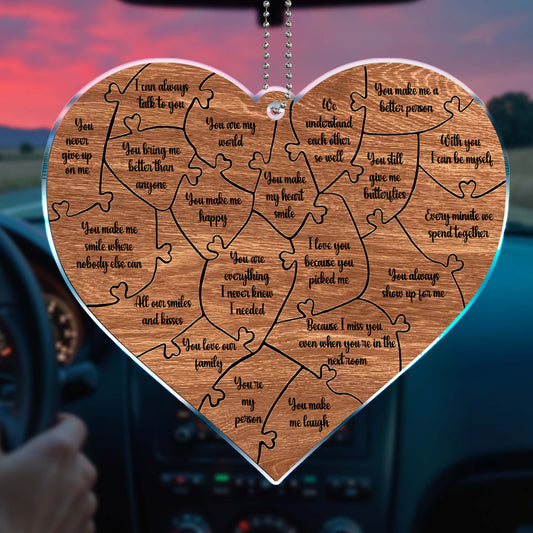 I can always
talk to you
You make me a
better person
We
understand
each other
so well
You
never
give up
on me
You are my
world
With you
I can be myself
You bring me
better than
anyone
You still
give me
butterflies
You make
my heart
smile
You make me
happy
Every minute we
spend together
You make me
smile where
nobody else can
I love you
because you
picked me
You are
everything
I never knew
I needed
You always
show up for me
All our smiles
and kisses
Because I miss you
even when you're in the
next room
You love our
family
You're
my
person
You make
me laugh